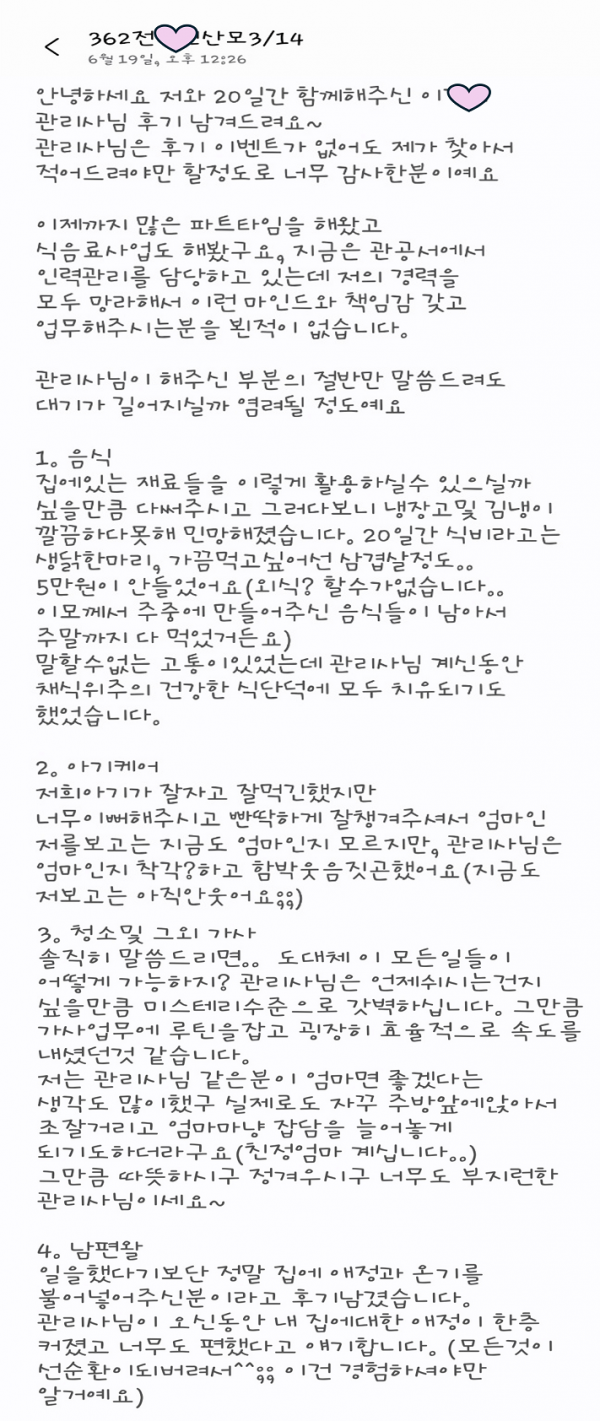 362전 산모3/14
6월 19일, 오후 12:26
안녕하세요 저와 20일간 함께해주신 이
관리사님 후기 남겨드려요~
관리사님은 후기 이벤트가 없어도 제가 찾아서
적어드려야만 할정도로 너무 감사한분이예요
이제까지 많은 파트타임을 해왔고
식음료사업도 해봤구요, 지금은 관공서에서
인력관리를 담당하고 있는데 저의 경력을
모두 망라해서 이런 마인드와 책임감 갖고
업무해주시는분을 뵌적이 없습니다.
관리사님이 해주신 부분의 절반만 말씀드려도
대기가 길어지실까 염려될 정도예요
1. 음식
집에있는 재료들을 이렇게 활용하실수 있으실까
싶을만큼 다써주시고 그러다보니 냉장고및 김냉이
깔끔하다못해 민망해졌습니다. 20일간 식비라고는
생닭한마리, 가끔먹고싶어선 삼겹살정도..
5만원이 안들었어요(외식? 할수가없습니다..
이모께서 주중에 만들어주신 음식들이 남아서
주말까지 다 먹었거든요)
말할수없는 고통이있었는데 관리사님 계신동안
채식위주의 건강한 식단덕에 모두 치유되기도
했었습니다.
2. 아기케어
저희아기가 잘자고 잘먹긴했지만
너무이뻐해주시고 빤딱하게 잘챙겨주셔서 엄마인
저를보고는 지금도 엄마인지 모르지만, 관리사님은
엄마인지 착각?하고 함박웃음짓곤했어요(지금도
저보고는 아직안웃어요;;)
3. 청소및 그외 가사
솔직히 말씀드리면.. 도대체 이 모든일들이
어떻게 가능하지? 관리사님은 언제쉬시는건지
싶을만큼 미스테리수준으로 갓벽하십니다. 그만큼
가사업무에 루틴을잡고 굉장히 효율적으로 속도를
내셨던것 같습니다.
저는 관리사님 같은분이 엄마면 좋겠다는
생각도 많이했구 실제로도 자꾸 주방앞에앉아서
조잘거리고 엄마마냥 잡담을 늘어놓게
되기도하더라구요(친정엄마 계십니다..)
그만큼 따뜻하시구 정겨우시구 너무도 부지런한
관리사님이세요~
4. 남편왈
일을했다기보단 정말 집에 애정과 온기를
불어넣어주신분이라고 후기남겼습니다.
관리사님이 오신동안 내 집에대한 애정이 한층
커졌고 너무도 편했다고 얘기합니다. (모든것이
선순환이되버려서^^;; 이건 경험하셔야만
알거예요)